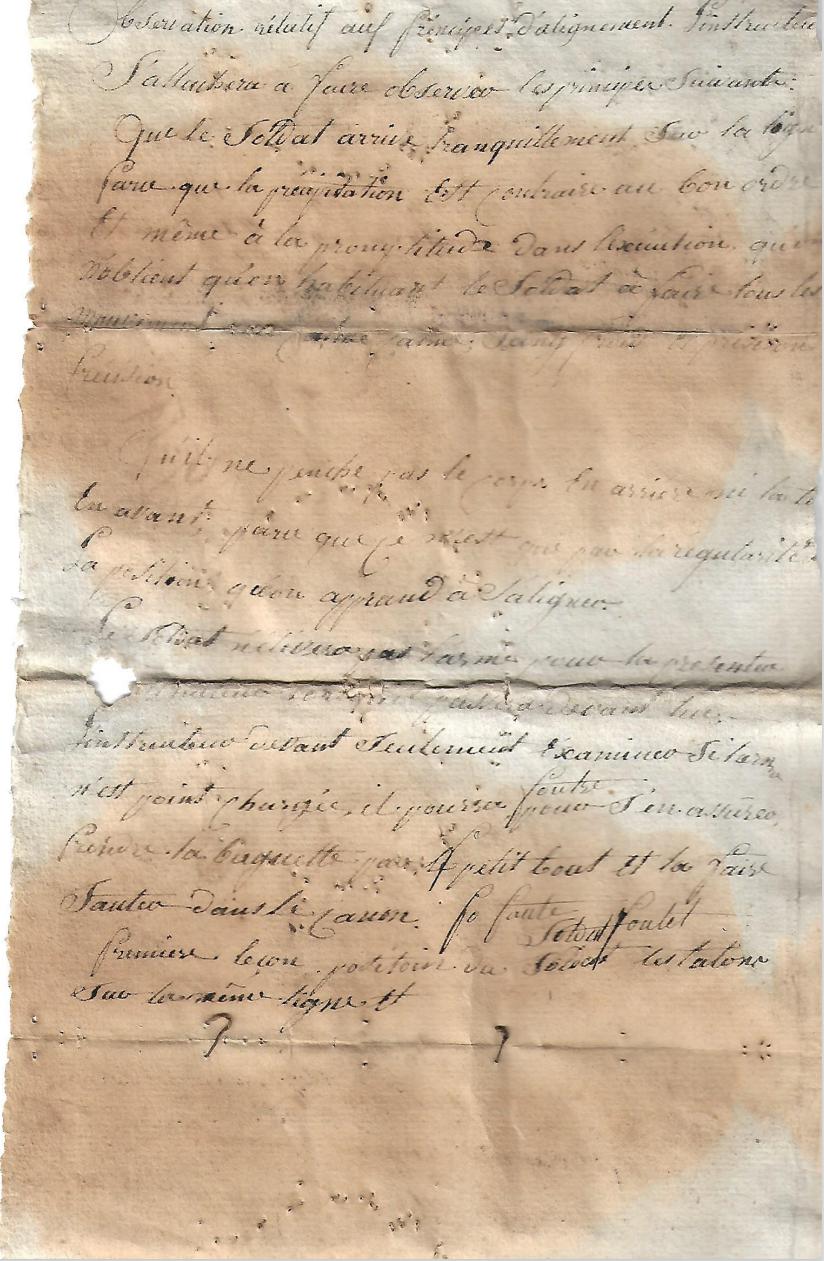 Observation rélatif aux principes d'alignement. l'instructeu
S'attachera a faire observer les principes Suivants:
Que le Soldat arrive tranquillement Sur la lign
parce que la précipitation Est contraire au bon ordre
Et même à la promptitude dans l'exécution. qu'on
n'obtient qu'en habituant le Soldat à faire tous les
mouvement
Precision
Qu'il ne penche pas le corps En arriere ni la te
En avant, parce que ce n'est que par la régularité
La position qu'on apprand à S'aligner.
Le Soldat n'élevera pas l'arme pour la présenter
devant lui
l'instructeur devant Seulement Examiner Si l'arme
n'est point chargée, il pourra pour S'en assurer,
Prendre la baguette par petit bout Et la faire
Sauter dans le canon.
Soldat
Premiere leçon position du Soldat les talons
Sur la même ligne Et